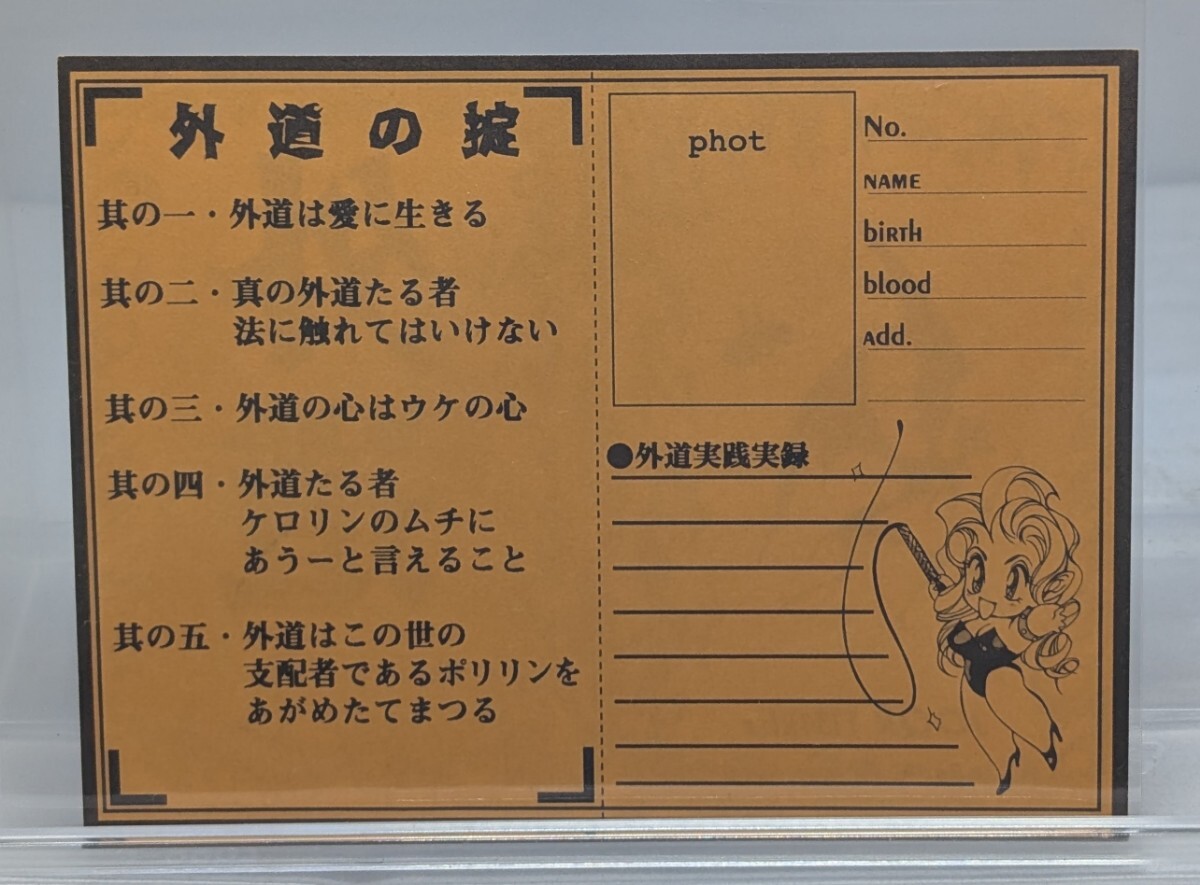 外道の掟
其の一・外道は愛に生きる
其の二・真の外道たる者
法に触れてはいけない
其の三・外道の心はウケの心
其の四・外道たる者
ケロリンのムチに
あうーと言えること
其の五・外道はこの世の
支配者であるポリリンを
あがめたてまつる
phot
No.
NAME
biRTh
blood
Add.
●外道実践実録